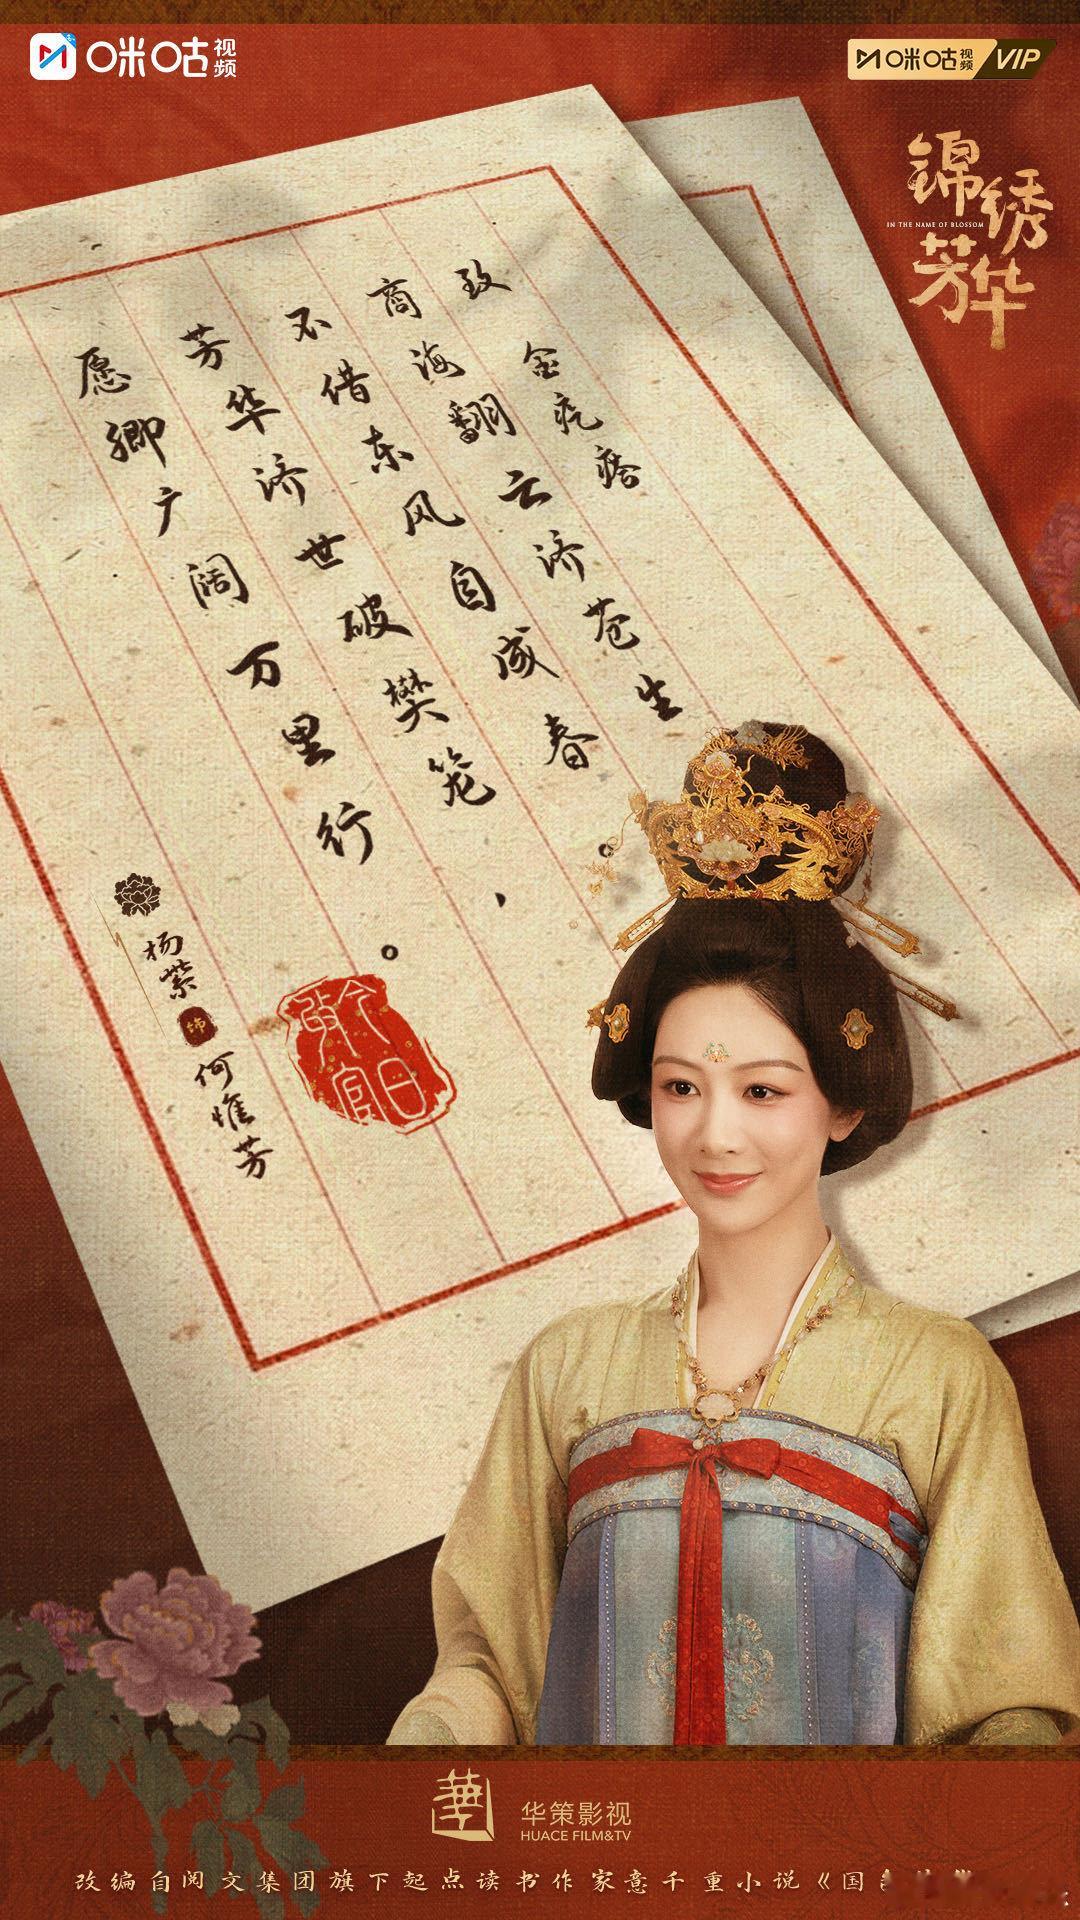 咪咕视频
咪咕视频 VIP
锦绣芳华
IN THE NAME OF BLOSSOM
致
金疙瘩
商海翻云济苍生
不借东风自成春。
芳华济世破樊笼、
愿卿广阔万里行。
杨紫
饰
何惟芳
今日
官
華
华策影视
HUACE FILM&TV
改编自阅文集团旗下起点读书作家意千重小说《国